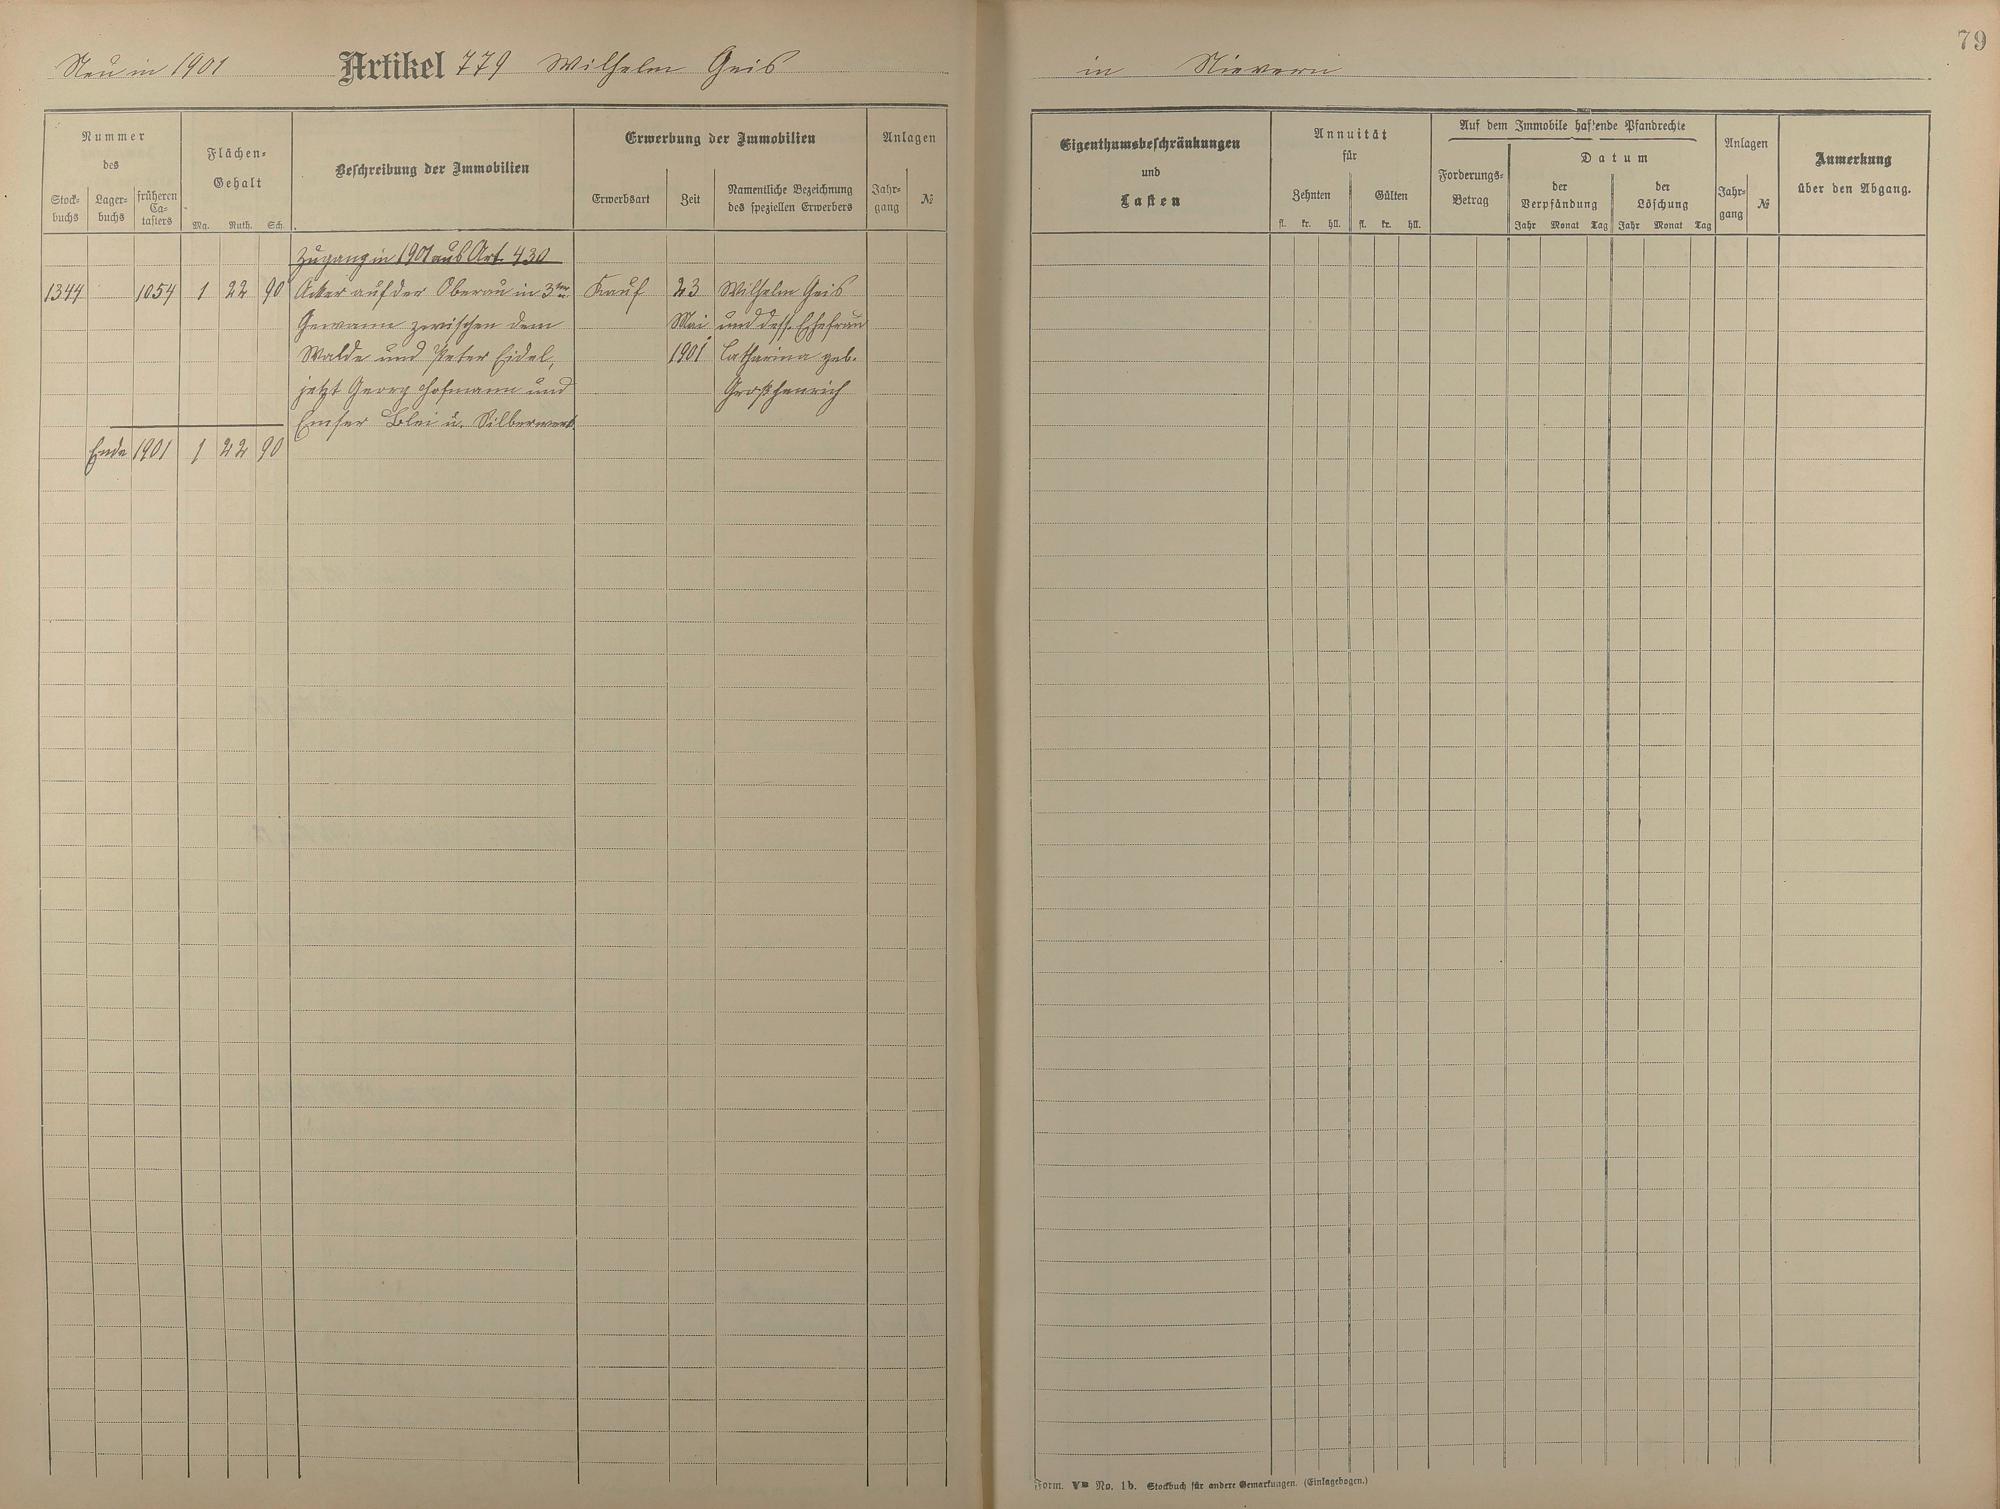 79
Neu in 1901 Artikel 779 Wilhelm Geis in Nievern
Nummer
des
Stock-
buchs
Lager-
buchs
früheren
Ca-
tasters
Flächen-
Gehalt
Mg. Ruth. Sch.
Beschreibung der Immobilien
Erwerbung der Immobilien
Erwerbsart
Zeit
Namentliche Bezeichnung
des speziellen Erwerbers
Anlagen
Jahr-
gang
№
Zugang in 1901 aus Art. 430
1344 1054 1 22 90 Acker auf der Oberau in 3ter Kauf 23 Wilhelm Geis
Gewann zwischen dem Mai und dess. Ehefrau
Walde und Peter Eidel, 1901 Catharina geb.
jetzt Georg Hofmann und Großhenrich
Emser Blei u. Silberwerk
Ende 1901 1 22 90
Eigenthumsbeschränkungen
und
Lasten
Annuität
für
Zehnten
Gülten
fl. kr. hll. fl. kr. hll.
Auf dem Immobile haftende Pfandrechte
Forderungs-
Betrag
Datum
der
Verpfändung
der
Löschung
Jahr Monat Tag Jahr Monat Tag
Anlagen
Jahr-
gang
№
Anmerkung
über den Abgang.
Form. No. 1b. Stockbuch für andere Gemarkungen. (Einlagebogen.)